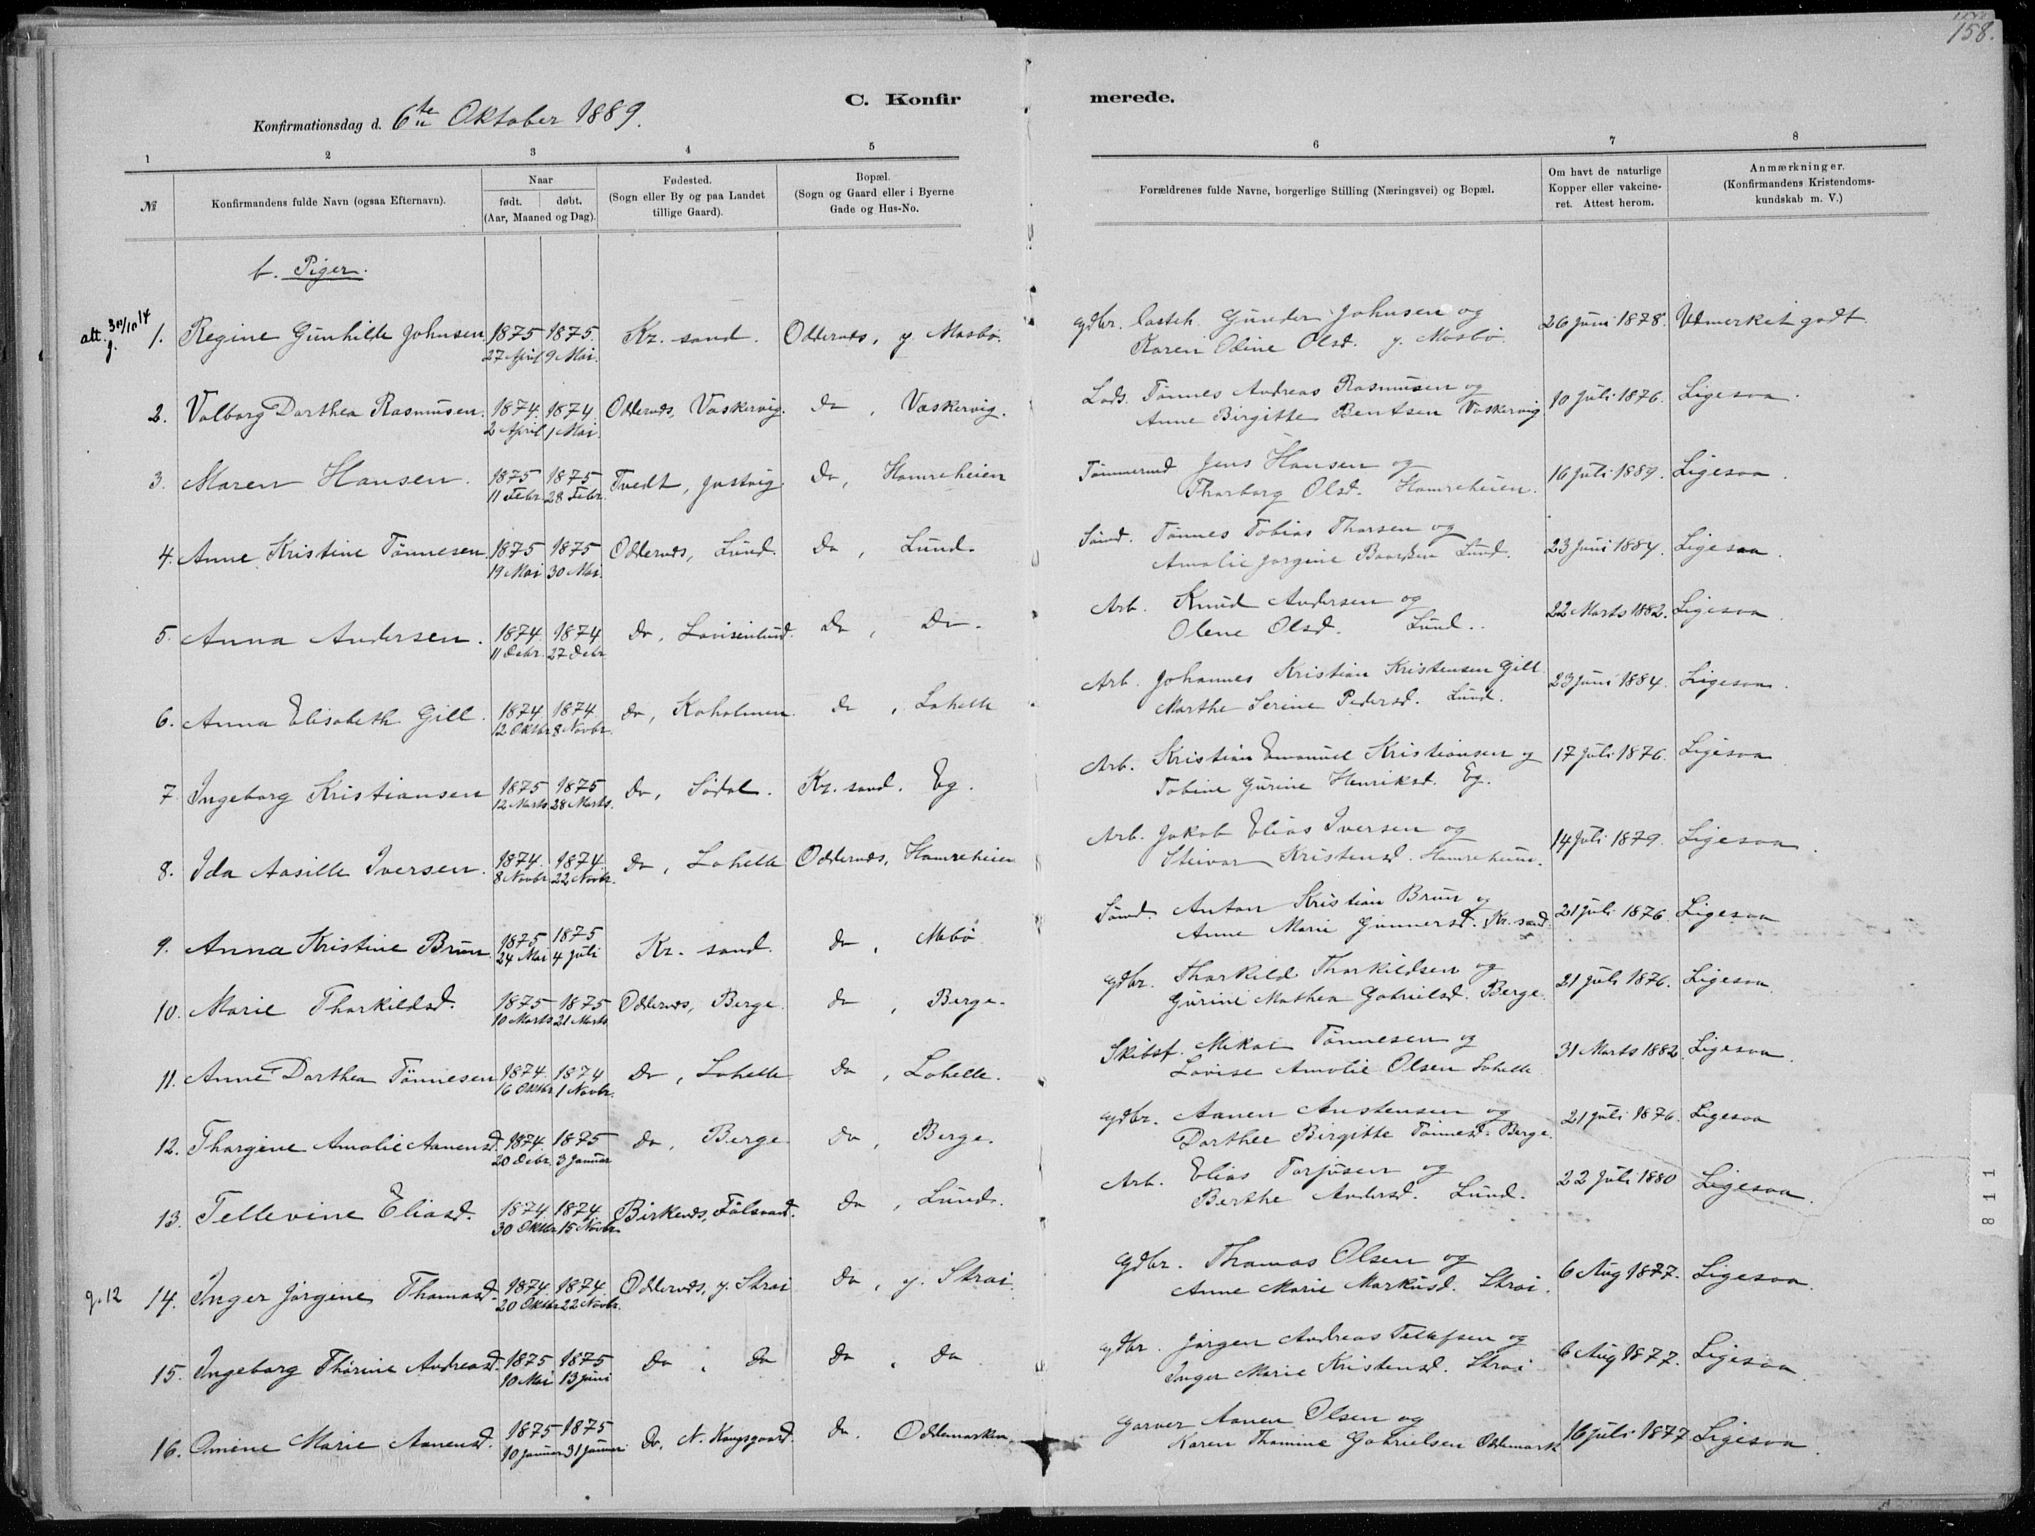 158.
C. Konfirmerede.
Konfirmationsdag d. 6te Oktober 1889.
1 2 3 4 5 6 7 8
№
Konfirmandens fulde Navn (ogsaa Efternavn).
Naar
født. døbt.
(Aar, Maaned og Dag).
Fødested.
(Sogn eller By og paa Landet
tillige Gaard).
Bopæl.
(Sogn og Gaard eller i Byerne
Gade og Hus-No.
Forældrenes fulde Navne, borgerlige Stilling (Næringsvei) og Bopæl.
Om havt de naturlige
Kopper eller vakcine-
ret. Attest herom.
Anmærkninger.
(Konfirmandens Kristendoms-
kundskab m. V.)
b. Piger.
att. 30/10 14
1. Regine Gunhilde Johnsen 1875 1875. Kr. sand. Oddernes, y. Mosbø. Gdbr. Gunder Johnsen og 26 Juni 1878. Udmerket godt
27 April 9 Mai. Karen Odine Olsd. y. Mosbø.
2. Valborg Dorthea Rasmusen. 1874. 1874 Oddernes, Vaskervig. do, Vaskervig. Lods. Tønnes Andreas Rasmusen og 10 Juli 1876. Ligesaa.
2 April 1 Mai. Anne Birgitte Bentsen Vaskervig
3. Maren Hansen. 1875 1875 Tvedt, Justvig do, Hamreheien Tømmermd Jens Hansen og 16 Juli 1889. Ligesaa.
11 Febr. 28 Febr. Thorborg Olsd. Hamreheien.
4. Anne Kristine Tønnesen. 1875 1875 Oddernes, Lund. do, Lund. Sømd. Tønnes Tobias Thorsen og 23 Juni 1884. Ligesaa.
19 Mai 30 Mai. Amalie Jørgine Lund.
5. Anna Andersen. 1874 1874 do, Lovisenlund. do, do. Arb. Knud Andersen og 22 Marts 1882. Ligesaa.
11 Debr. 27 Debr Olene Olsd. Lund.
6. Anna Elisabeth Gill. 1874 1874 do, Koholmen. do, Lahelle Arb. Johannes Kristian Kristensen Gill 23 Juni 1884. Ligesaa.
12 Oktbr 8 Novbr. Marthe Serine Pedersd. Lund.
7 Ingeborg Kristiansen 1875 1875 do, Sødal. Kr. sand. Eg. Arb. Kristian Emanuel Kristiansen og 17 Juli 1876. Ligesaa
12 Marts 28 Marts. Tobine Gurine Henriksd. Eg.
8. Ida Aasille Iversen. 1874. 1874. do, Lahelle Oddernes, Hamreheien Arb. Jakob Elias Iversen og 14 Juli 1879. Ligesaa.
8 Novbr 22 Novbr. Kristensd. Hamreheien.
9. Anna Kristine Brun 1875 1875 Kr. sand. do, Sømd. Anton Kristian Brun og 21 Juli 1876. Ligesaa
24 Mai 4 Juli Anne Marie Gunnersd. Kr. sand
10. Marie Thorkildsd. 1875 1875 Oddernes, Berge. do, Berge. Gdbr. Thorkild Thorkildsen og 21 Juli 1876. Ligesaa.
10 Marts 21 Marts. Gurine Mathea Gabrielsd. Berge.
11. Anne Dorthea Tønnesen 1874. 1874 do, Lahelle do, Lahelle. Skibsf. Mikal Tønnesen og 31 Marts 1882. Ligesaa.
16 Oktbr 1 Novbr. Lovise Amalie Olsen Lahelle
12. Thorgine Amalie Aanensd. 1874. 1875 do, Berge do, Berge. Gdbr. Aanen Anstensen og 21 Juli 1876. Ligesaa
20 Debr. 3 Januar Dorthee Birgitte Tønnesd. Berge.
13. Tellevine Eliasd. 1874 1874. Birkenes, do, Lund. Arb. Elias Torjusen og 22 Juli 1880 Ligesaa.
30 Oktbr 15 Novbr. Berthe Andersd. Lund.
g. 12
14. Inger Jørgine Thomasd. 1874. 1874. Oddernes, y. Strai do, y. Strai. Gdbr. Thomas Olsen og 6 Aug 1877. Ligesaa.
20 Oktbr 22 Novbr. Anne Marie Markusd. Strai.
15. Ingeborg Thorine Andreasd. 1875 1875 do, do do, do Gdbr. Jørgen Andreas Tellefsen og 6 Aug 1877. Ligesaa
10 Mai 13 Juni Inger Marie Kristensd. Strai
16. Omine Marie Aanensd. 1875 1875 do, N. Kongsgaard. do. Oddemarken Garver Aanen Olsen og 16 Juli 1877 Ligesaa.
10 Januar 31 Januar Karen Thomine Gabrielsen Oddemark
811